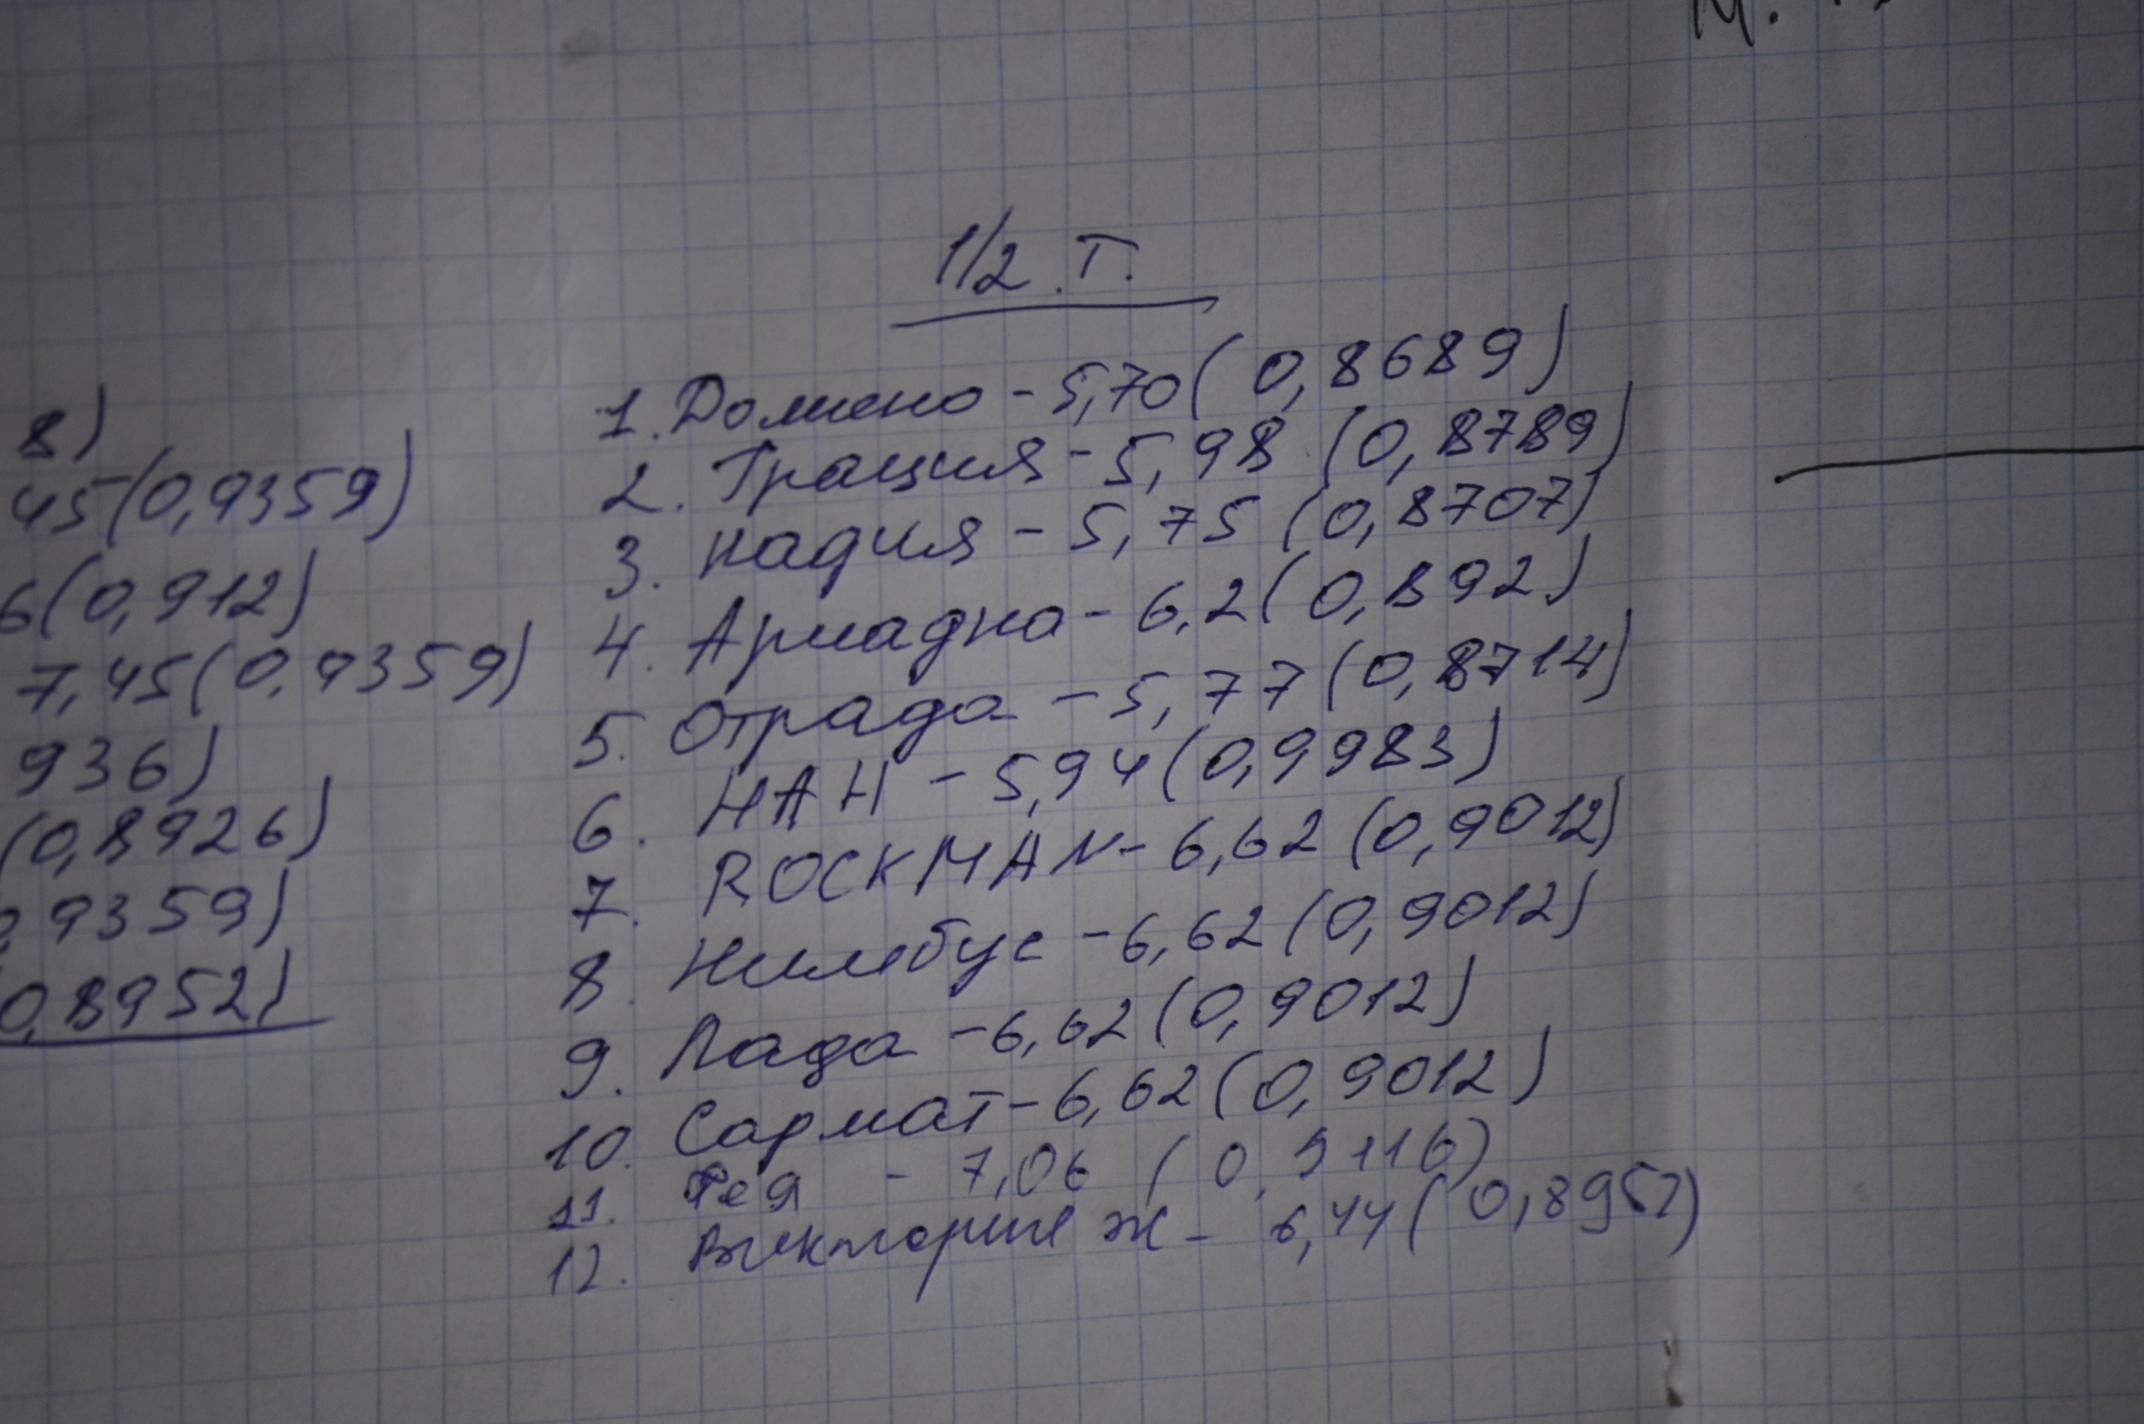 8)
45(0,9359)
6(0,912)
7,45(0,9359)
936)
(0,8926)
,9359)
0,8952)
1/2 Т.
1. Домено - 5,70 (0,8689)
2. Грация - 5,98 (0,8789)
3. Надия - 5,75 (0,8707)
4. Ариадна - 6,2 (0,892)
5. Отрада - 5,77 (0,8714)
6. НАН - 5,94 (0,9983)
7. ROCKMAN - 6,62 (0,9012)
8. Нимбус - 6,62 (0,9012)
9. Лада - 6,62 (0,9012)
10. Сармат - 6,62 (0,9012)
11. Фея - 7,06 (0,9116)
12. Виктория ж - 6,44 (0,8952)